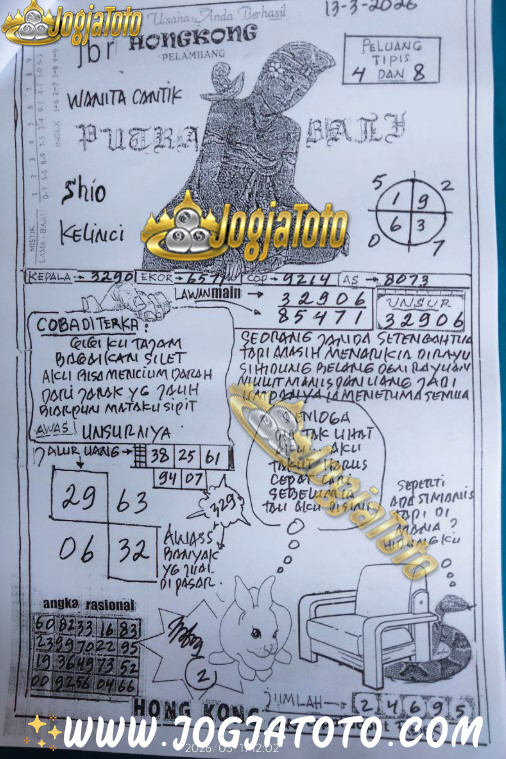 JogjaToto
Usaha Anda Berhasil
13-3-2026
jbr HONGKONG
PELAMBANG
PELUANG
TIPIS
4 DAN 8
WANITA CANTIK
PUTRA BALI
Shio
KELINCI
5 2
1 9
6 3
0 7
JogjaToto
KEPALA → 3290 EKOR → 6571 COP → 9214 AS → 8073
LAWAN main → 32906
85471
UNSUR
32906
COBA DI TERKA:
GIGI KU TAJAM
BAGAIKAN SILET
AKU BISA MENCIUM DARAH
DARI JARAK YG JAUH
BIARPUN MATAKU SIPIT
AWAS UNSURNIYA
SEORANG JANDA SETENGAH TUA
TAPI MASIH MENARIK IA DIRAYU
SI HIDUNG BELANG DENGAN RAYUAN
MULUT MANIS DAN UANG JADI
SEMOGA
TAK LIHAT
AKU
HARUS
SEBELUM
SEPERTI
ADA SI MANIS
TAPI DI
MANA?
JALUR UANG → 38 25 61
94 07
329
29 63
06 32
AWASS
BANYAK
YG JUAL
DI PASAR
JogjaToto
angka rasional
60 82 33 16 83
23 99 70 22 95
19 36 49 73 52
00 92 56 04 66
2
HONG KONG
JUMLAH → 2 4 6 9 5
WWW.JOGJATOTO.COM